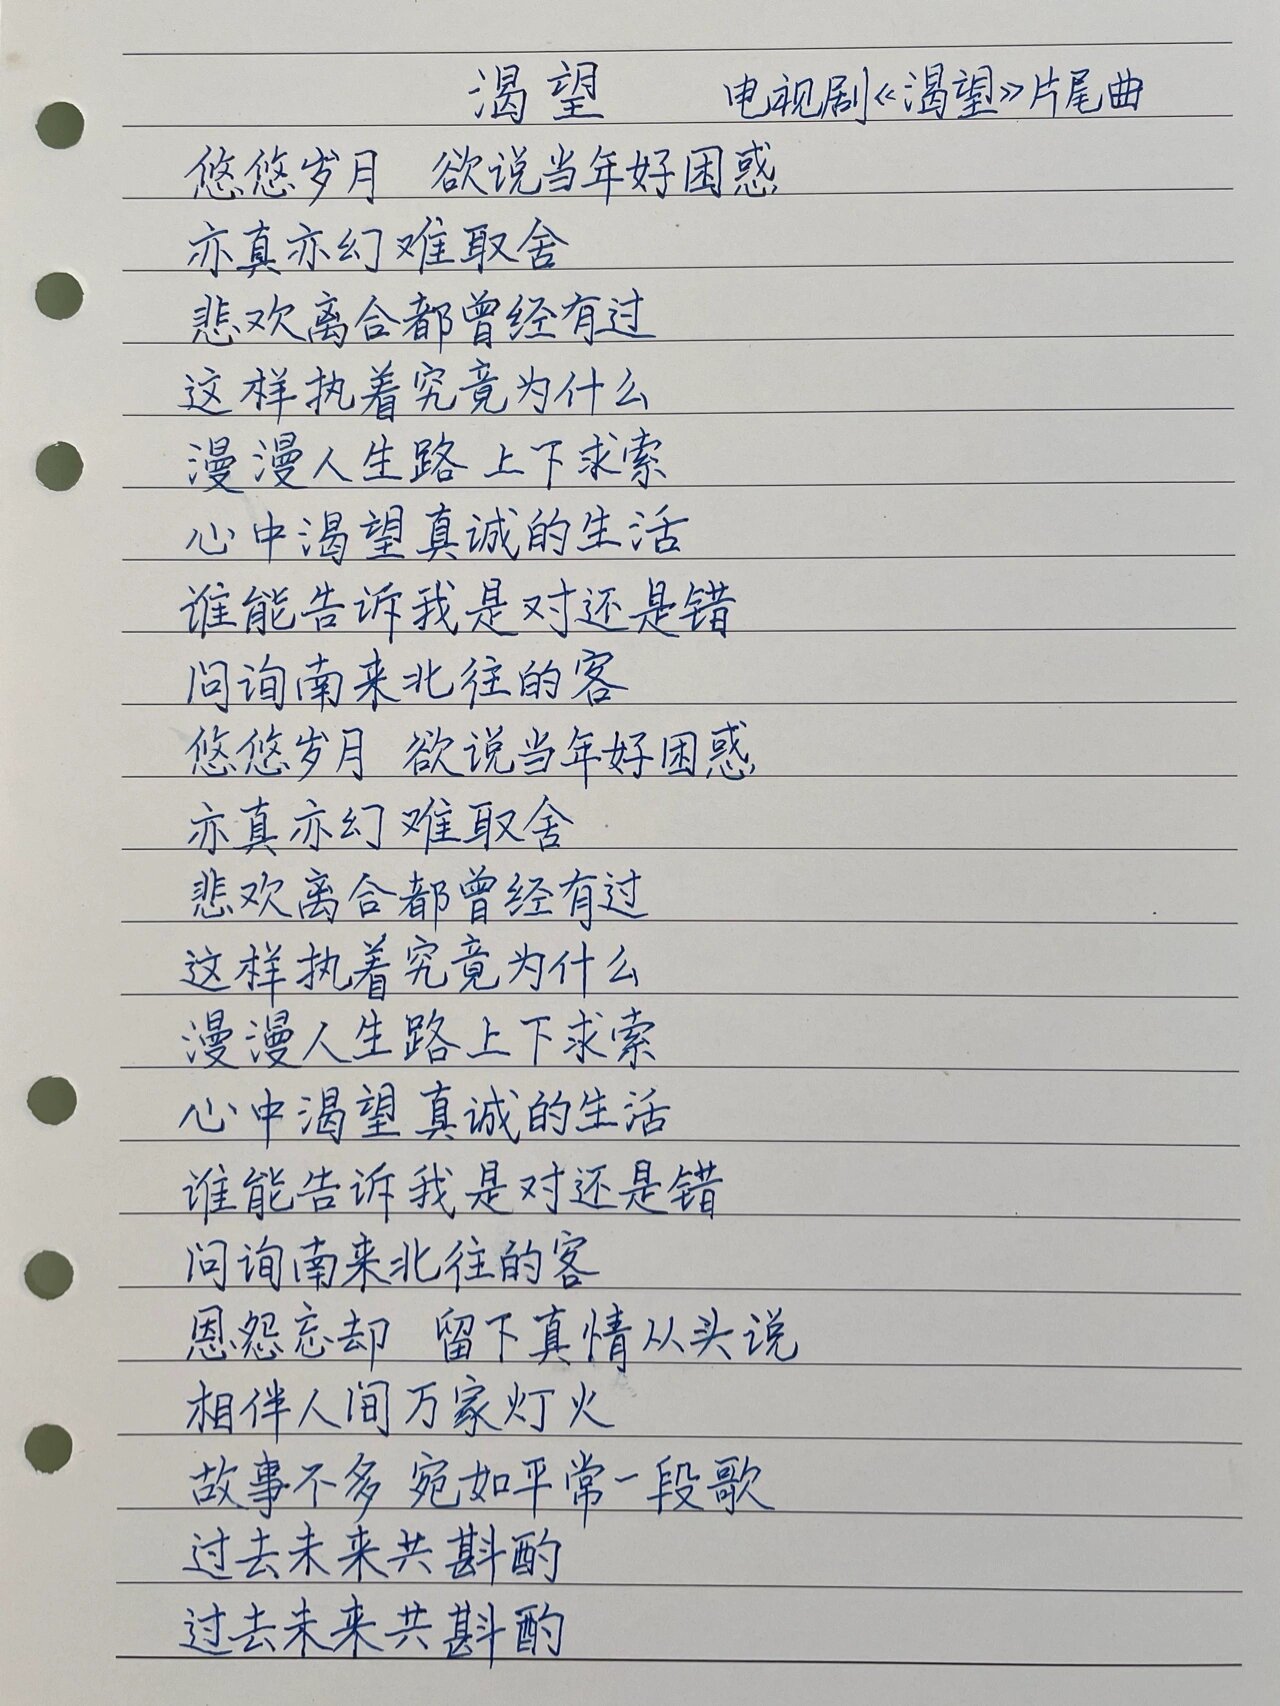 渴望 电视剧《渴望》片尾曲
悠悠岁月 欲说当年好困惑
亦真亦幻难取舍
悲欢离合都曾经有过
这样执着究竟为什么
漫漫人生路 上下求索
心中渴望真诚的生活
谁能告诉我是对还是错
问询南来北往的客
悠悠岁月 欲说当年好困惑
亦真亦幻难取舍
悲欢离合都曾经有过
这样执着究竟为什么
漫漫人生路上下求索
心中渴望真诚的生活
谁能告诉我是对还是错
问询南来北往的客
恩怨忘却 留下真情从头说
相伴人间万家灯火
故事不多 宛如平常一段歌
过去未来共斟酌
过去未来共斟酌